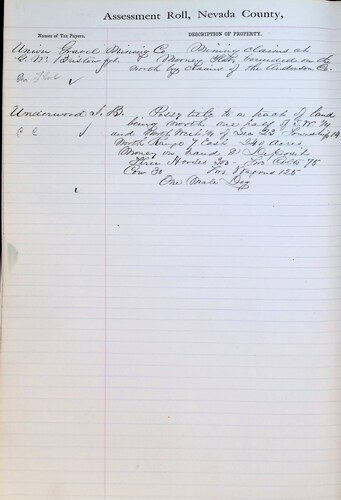 Assessment Roll, Nevada County,
Names of Tax Payers. DESCRIPTION OF PROPERTY.
Union Gravel Mining Co Mining claims at
G. W. Money Flat, bounded on the
North by Claims of the Co.
Underwood J. B. Possy title to a peace of land
being North one half of S.W. 1/4
and North West 1/4 of Sec 23 Township 14
North Range 7 East 240 Acres
Money on hand & Deposit
Three Horses 300 Two Colts 75
Cow 30 Two Wagons 125
One Male Dog